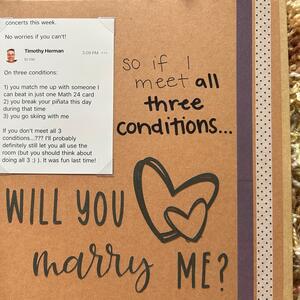 concerts this week.
No worries if you can't!
Timothy Herman
3:09 PM
On three conditions:
1) you match me up with someone I
can beat in just one Math 24 card
2) you break your piñata this day
during that time
3) you go skiing with me
If you don't meet all 3
conditions...??? I'll probably
definitely still let you all use the
room (but you should think about
doing all 3 :) ). It was fun last time!
so if I
meet all
three
conditions...
WILL YOU
marry ME?